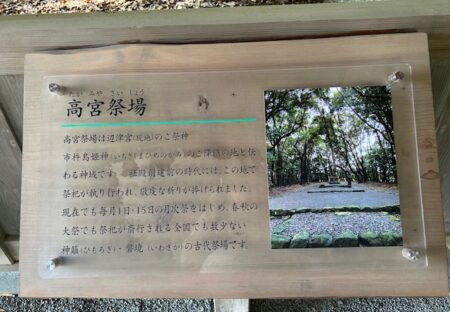 たか みや さい じょう
高宮祭場
高宮祭場は辺津宮(現地)のご祭神
市杵島姫神(いちきしまひめのかみ)のご降臨の地と伝
わる神域です。社殿創建前の時代には、この地で
祭祀が執り行われ、敬虔な祈りが捧げられました。
現在でも毎月1日・15日の月次祭をはじめ、春秋の
大祭でも祭祀が斎行される全国でも数少ない
神籬(ひもろぎ)・磐境(いわさか)の古代祭場です。